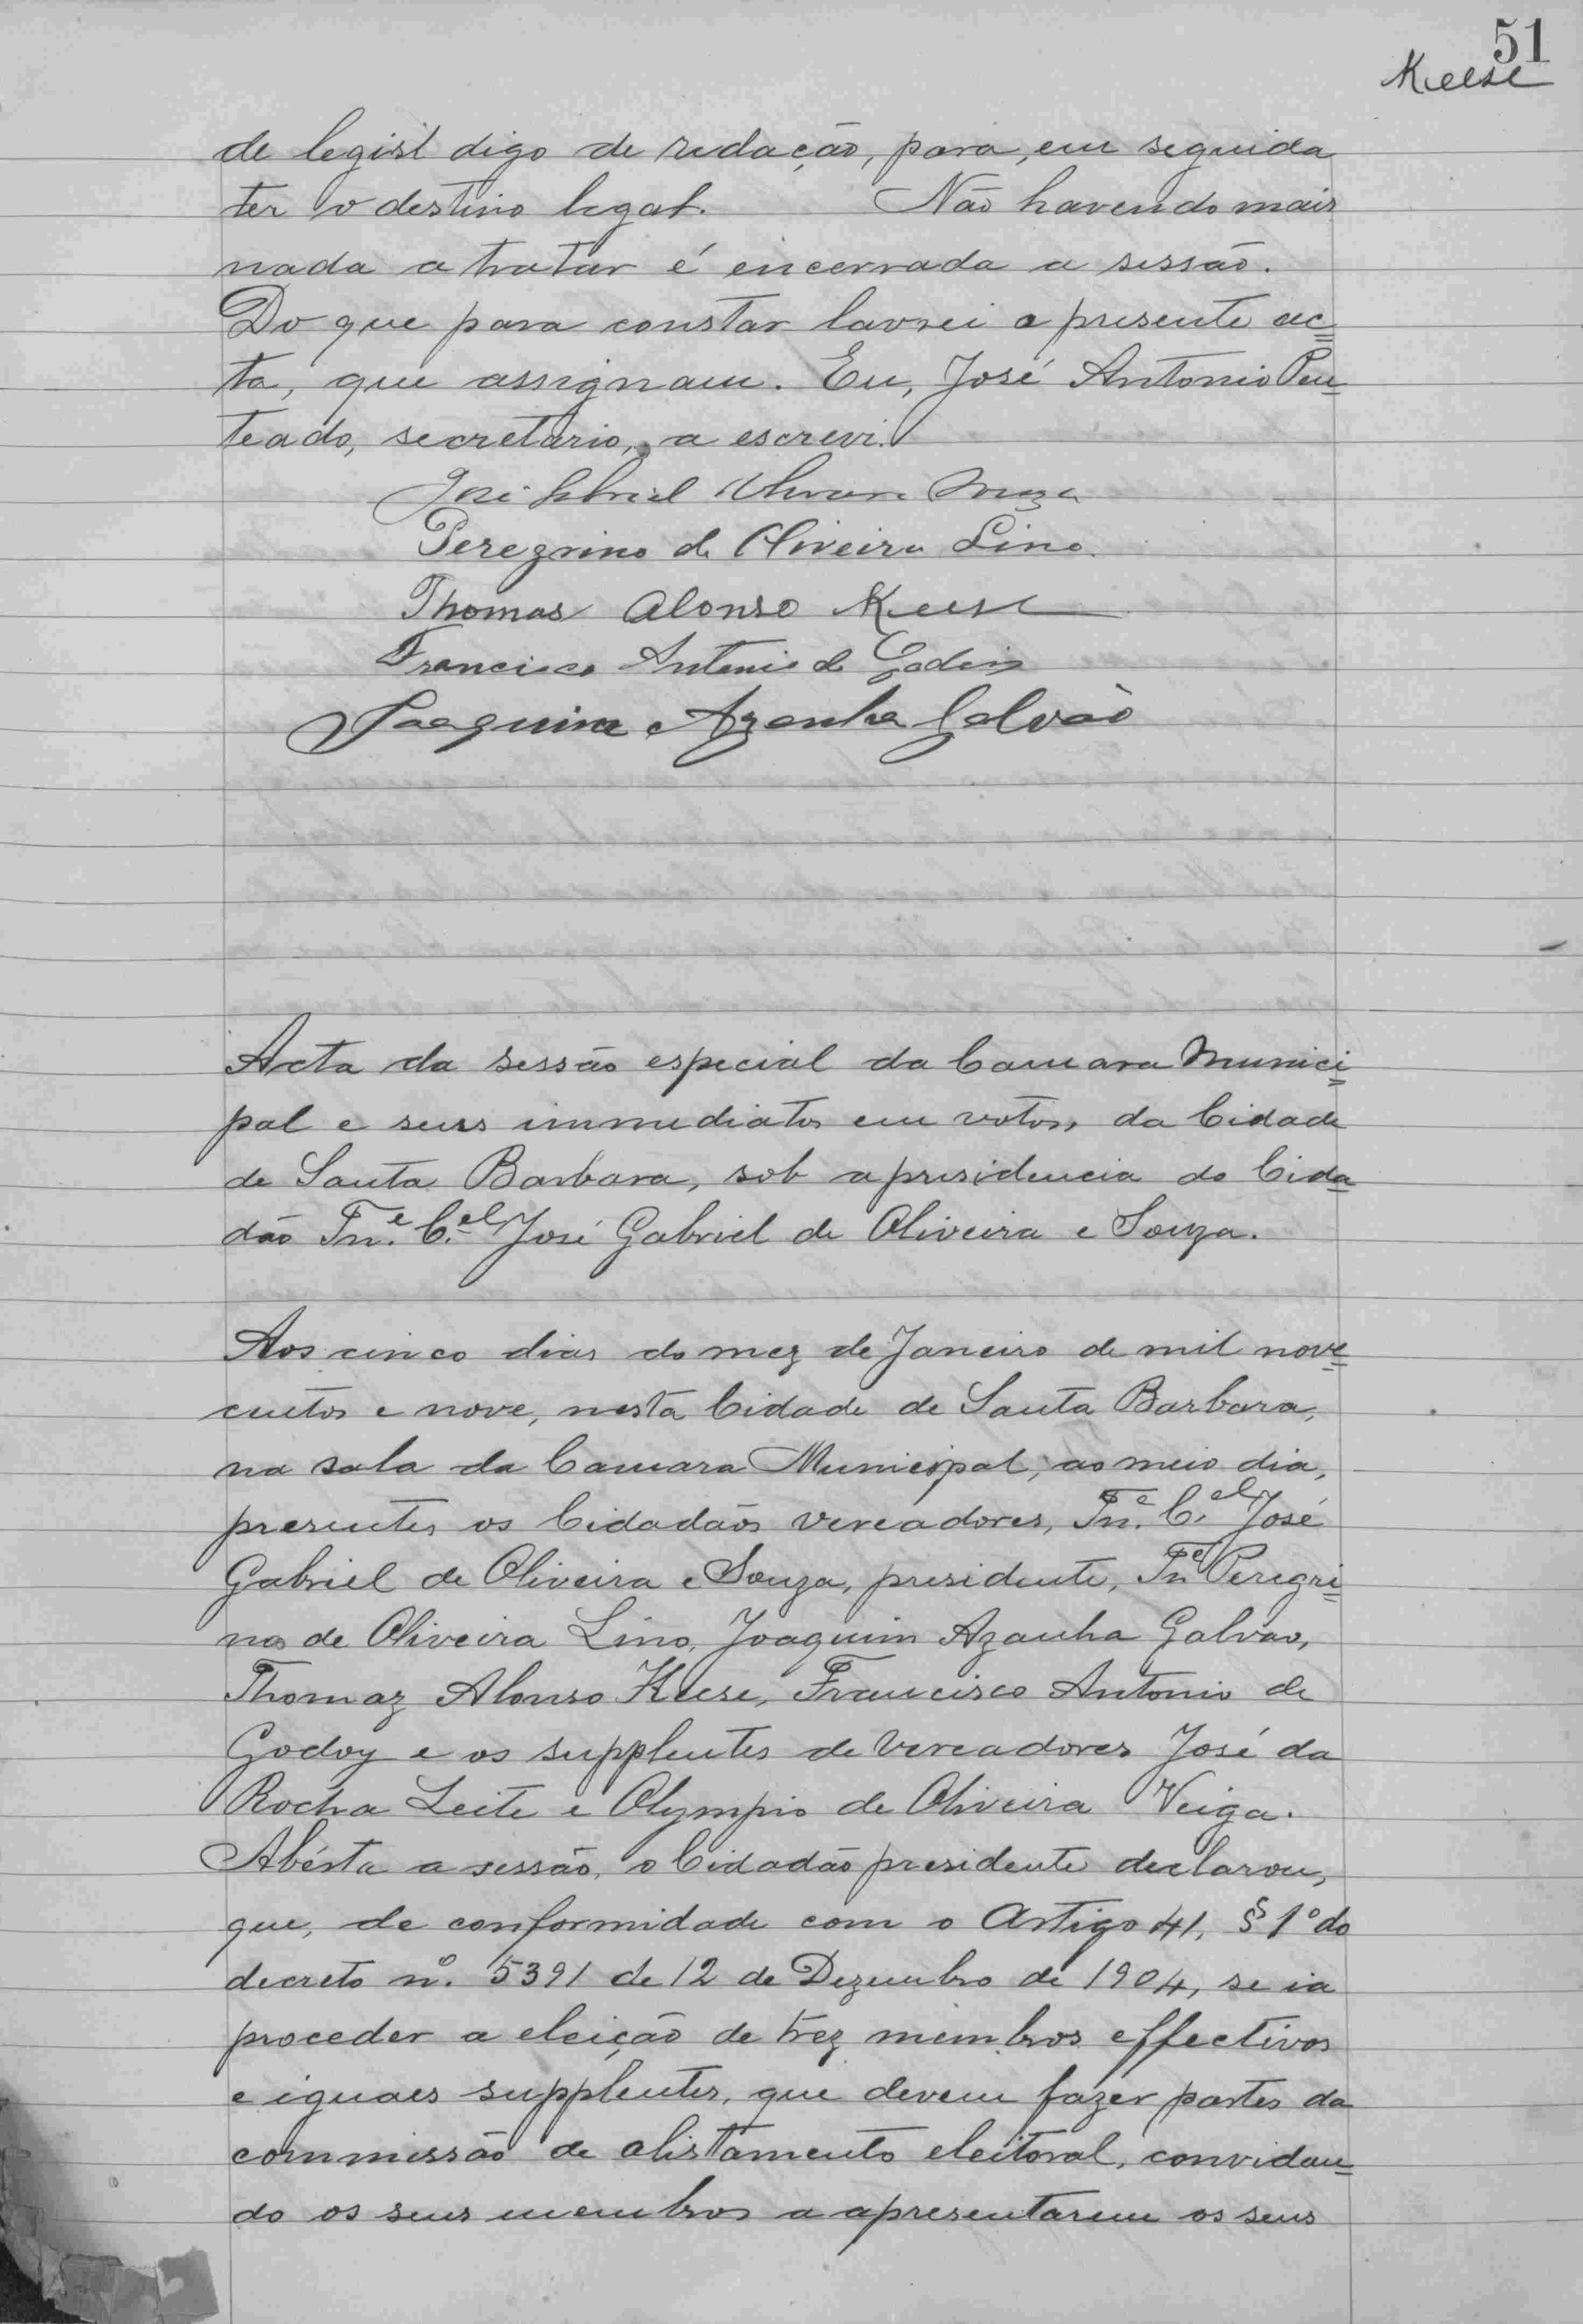 51
Keese
de legisl digo de redação, para, em seguida
ter o destino legal. Não havendo mais
nada a tratar é encerrada a sessão.
Do que para constar lavrei a presente ac=
ta, que assignam. Eu, José Antonio Pen=
teado, secretario, a escrevi.
José Gabriel Oliveira Souza
Peregrino de Oliveira Lino.
Thomas Alonso Keese
Francisco Antonio de Godoy
Joaquim Azanha Galvão
Acta da sessão especial da Camara Munici=
pal e seus immediatos em votos, da Cidade
de Santa Barbara, sob a presidencia do Cida=
dão Tn.e C.el José Gabriel de Oliveira e Souza.
Aos cinco dias do mez de Janeiro de mil nove=
centos e nove, nesta Cidade de Santa Barbara,
na sala da Camara Municipal, ao meio dia,
presentes os Cidadãos vereadores, Tn.e C.el José
Gabriel de Oliveira e Souza, presidente, Tn.e Peregri=
no de Oliveira Lino, Joaquim Azanha Galvão,
Thomaz Alonso Keese, Francisco Antonio de
Godoy e os supplentes de vereadores José da
Rocha Leite e Olympio de Oliveira Veiga.
Abérta a sessão, o Cidadão presidente declarou,
que, de conformidade com o Artigo 41, § 1º do
decreto nº. 5391 de 12 de Dezembro de 1904, se ia
proceder a eleição de trez membros effectivos
e iguaes supplentes, que devem fazer partes da
commissão de alistamento eleitoral, convidan=
do os seus membros a apresentarem os seus